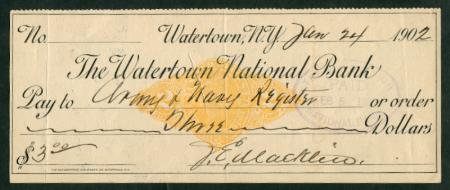 No. Watertown, N.Y. Jan 24 1902
The Watertown National Bank
Pay to Army & Navy Register or order
Three Dollars
$3.00 J. E. Macklin.